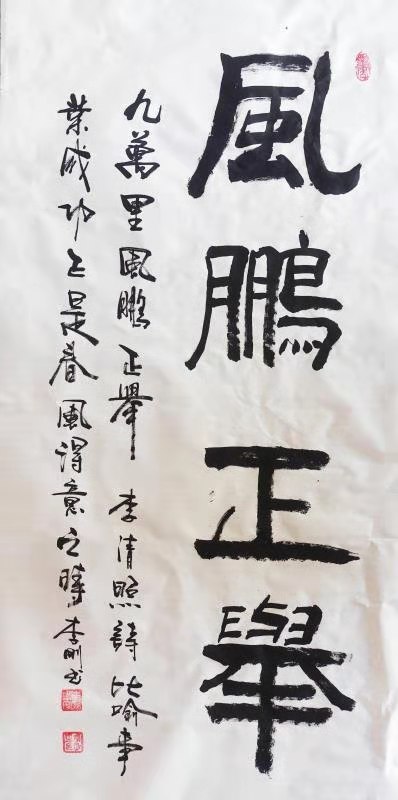 風鵬正舉
九萬里風鵬正舉 李清照詩 比喻事
業成功正是春風得意之時 李刚书